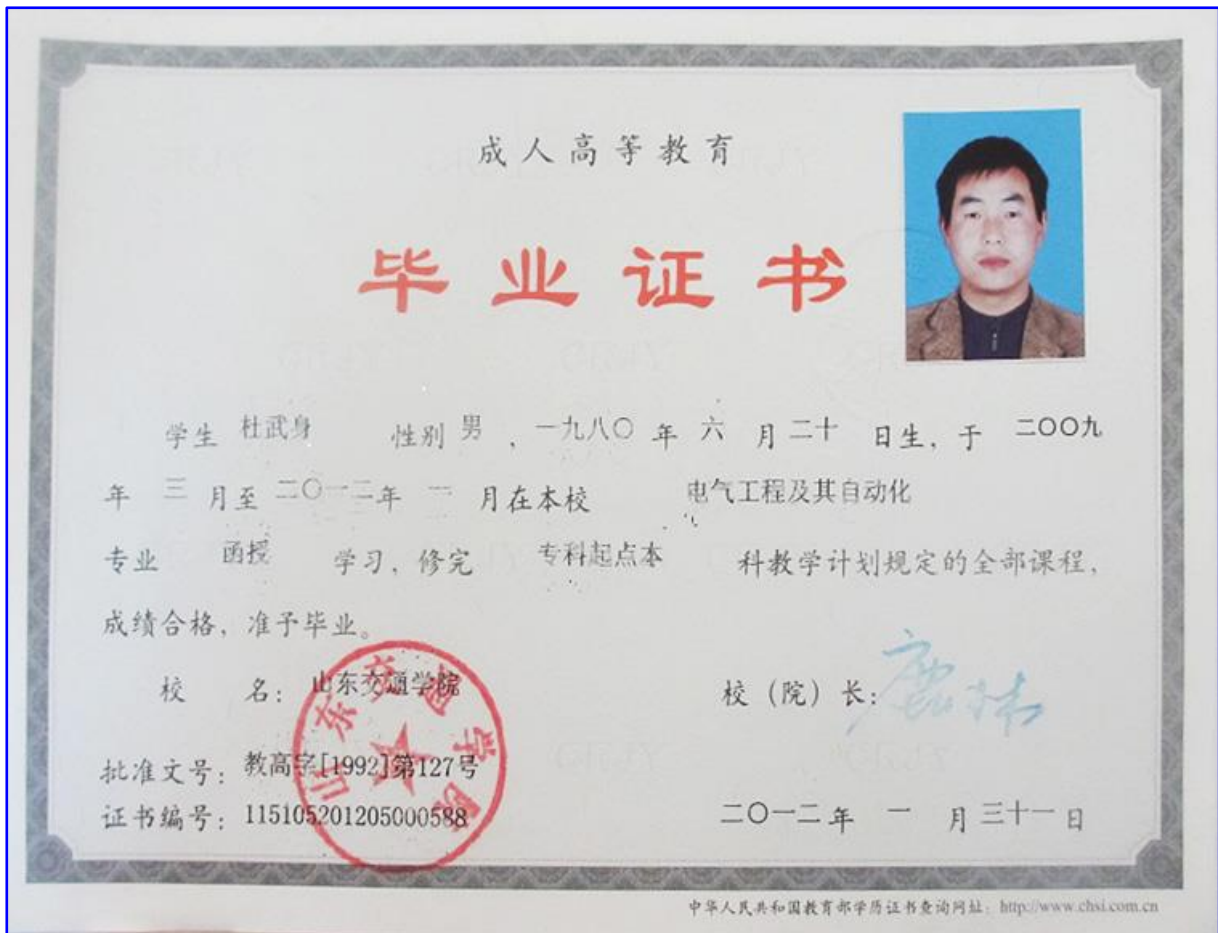 成人高等教育
毕业证书
学生 杜武身 性别 男 ，一九八〇 年 六 月 二十 日生，于 二〇〇九
年 三 月至 二〇一二年 一 月在本校 电气工程及其自动化
专业 函授 学习，修完 专科起点本 科教学计划规定的全部课程，
成绩合格，准予毕业。
校 名：山东交通学院
校（院）长：
山东交通学院
批准文号：教高字[1992]第127号
证书编号：115105201205000588
二〇一二年 一 月 三十一 日
中华人民共和国教育部学历证书查询网址：http://www.chsi.com.cn